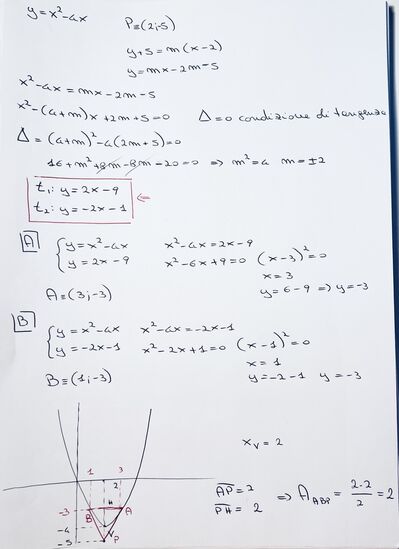 y = x² - 4x P ≡ (2; -5)
y + 5 = m(x - 2)
y = mx - 2m - 5
x² - 4x = mx - 2m - 5
x² - (4+m)x + 2m + 5 = 0 Δ = 0 condizione di tangenza
Δ = (4+m)² - 4(2m + 5) = 0
16 + m² + 8m - 8m - 20 = 0 ⇒ m² = 4 m = ±2
t₁: y = 2x - 9
t₂: y = -2x - 1 ⇐
A { y = x² - 4x x² - 4x = 2x - 9
y = 2x - 9 x² - 6x + 9 = 0 (x - 3)² = 0
x = 3
A ≡ (3; -3) y = 6 - 9 ⇒ y = -3
B { y = x² - 4x x² - 4x = -2x - 1
y = -2x - 1 x² - 2x + 1 = 0 (x - 1)² = 0
x = 1
B ≡ (1; -3) y = -2 - 1 y = -3
x_V = 2
1 2 3
-3 B H A
-4 V
-5 P
PH = 2 ⇒ A_ABP = 2·2/2 = 2